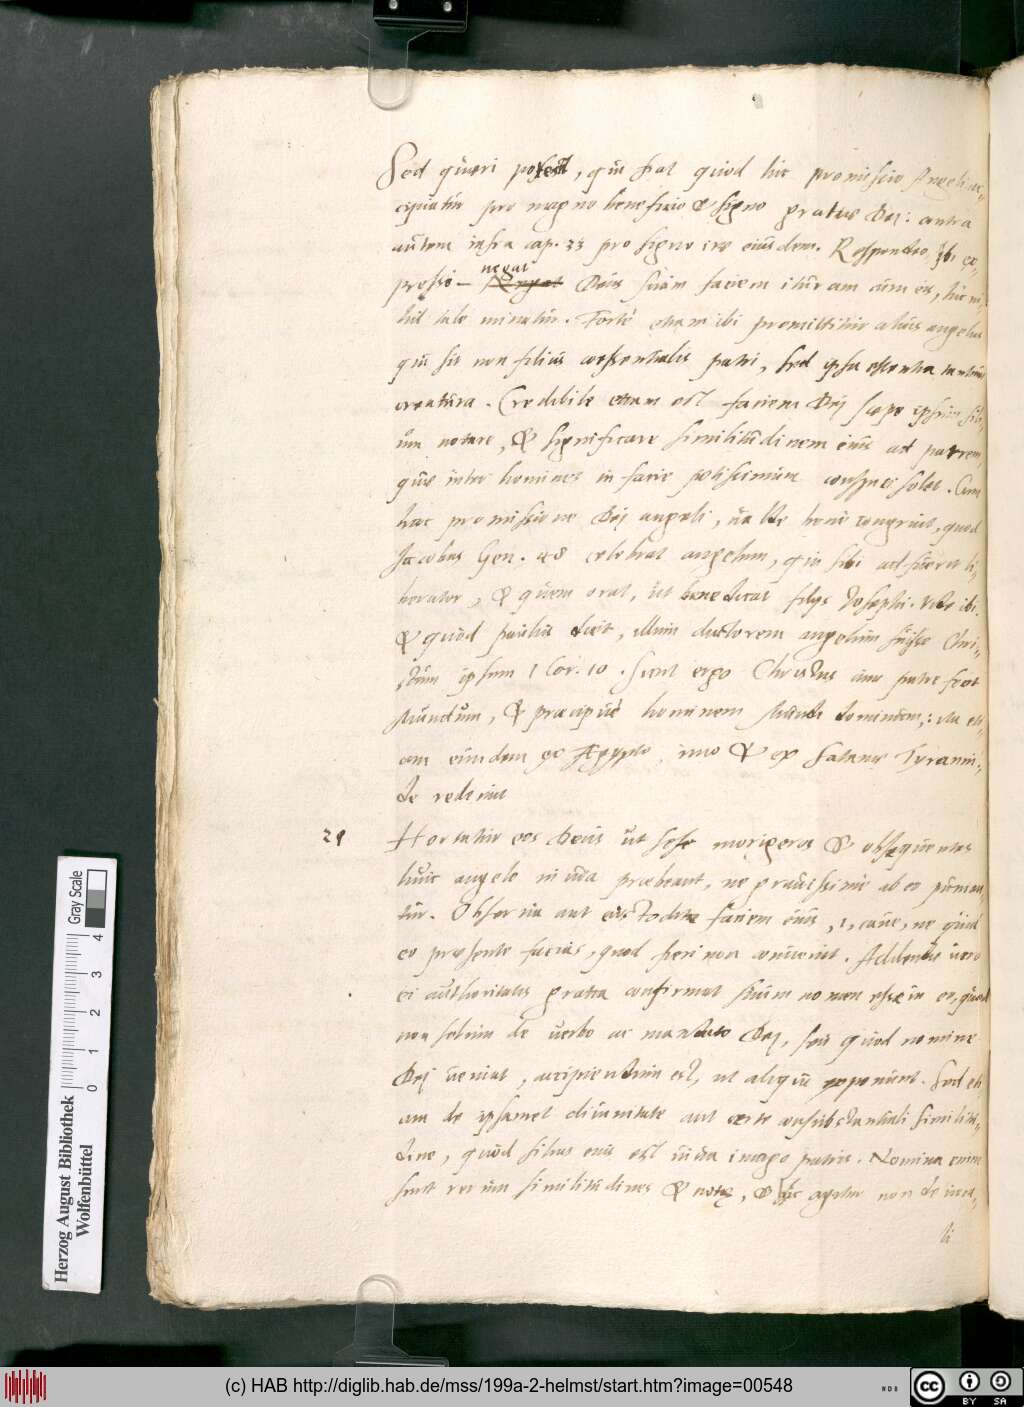 Sed quæri potest, qui fiat quod hic promissio Angeli ac„
cipiatur pro magno beneficio & signo gratiæ Dei: contra
autem infra cap. 33 pro signo iræ eiusdem. Respondeo, Ibi ex„
presse negat Deus suam faciem ituram cum eis, hic ni„
hil tale minatur. Forté etiam ibi promittitur alius angelus
qui sit non filius coessentialis patri, sed ipsa essentia tantum
creatura. Credibile etiam est faciem Dei sæpe ipsum fili„
um notare, & significare similitudinem eius ad patrem,
quæ inter homines in facie potissimum conspici solet. Cum
hac promissione Dei angeli, valde bene congruit, quod
Jacobus Gen. 48 celebrat angelum, qui sibi adfuerit li„
berator, & quem orat, ut benedicat filijs Josephi. Vide ibi.
& quod paulus dicit, illum ductorem angelum fuisse Chri„
stum ipsum 1 Cor. 10. Sicut ergo Christus cum patre fecit
Mundum, & præcipué hominem Mundi dominum: ita eti„
am eundem ex Ægypto, imo & ex Satanæ Tyranni„
de redemit
21 Hortatur eos Deus ut sese morigeros & obsequentes
huic angelo in via præbeant, ne gravissime ab eo punian„
tur. Observa aut custodite faciem eius, i, cave, ne quid
eo præsente facias, quod fieri non convenit. Addendæ vero
ei authoritatis gratia confirmat suum nomen esse in eo, quod
non solum de verbo ac mandato Dei, seu quod nomine
Dei veniat, accipiendum est, ut aliqui exponunt. Sed eti
am de ipsamet divinitate aut certe consubstantiali similitu„
dine, quod filius eius est viva imago patris. Nomina enim
sunt rerum similitudines & notæ, & hic agitur non de voca„
li
Herzog August Bibliothek
Wolfenbüttel
0 1 2 3 4 Gray Scale
(c) HAB http://diglib.hab.de/mss/199a-2-helmst/start.htm?image=00548
cc BY SA